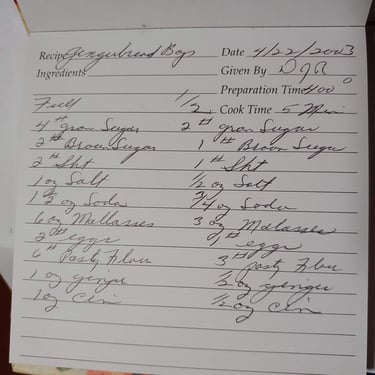 Recipe Gingerbread Boys Date 4/22/2003
Ingredients Given By DJR
Preparation Time 400°
Full 1/2 Cook Time 5 Min
4# gran Sugar 2# gran Sugar
2# Brown Sugar 1# Brown Sugar
2# Sht 1# Sht
1 oz Salt 1/2 oz Salt
1 1/2 oz Soda 3/4 oz Soda
6 oz Mallasses 3 oz Malasses
2# eggs 1# eggs
6# Pasty Flour 3# pasty Flou
1 oz ginger 1/2 oz ginger
1 oz Cin 1/2 oz Cin